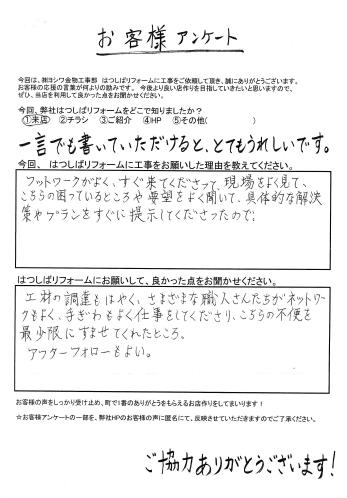 お客様 アンケート
今回は、㈱ヨシワ金物工事部 はつしばリフォームに工事をご依頼して頂き、誠にありがとうございます。
お客様の応援の言葉が何よりの励みです。 今後より良い店作りを目指していきたいと思いますので、
ぜひ、当店を利用して良かった点をお聞かせください。
今回、弊社はつしばリフォームをどこで知りましたか?
①来店 ②チラシ ③ご紹介 ④HP ⑤その他( )
一言でも書いていただけると、とてもうれしいです。
今回、 はつしばリフォームに工事をお願いした理由を教えてください。
フットワークがよく、すぐ来てくださって、現場をよく見て、
こちらの困っているところや要望をよく聞いて、具体的な解決
策やプランをすぐに提示してくださったので。
はつしばリフォームにお願いして、良かった点をお聞かせください。
工材の調達もはやく、さまざまな職人さんたちがネットワー
クもよく、手ぎわもよく仕事をしてくださり、こちらの不便を
最少限にすませてくれたところ。
アフターフォローもよい。
お客様の声をしっかり受け止め、町で1番のありがとうをもらえるお店作りをしてまいります!
☆お客様アンケートの一部を、弊社HPのお客様の声に匿名にて、反映させていただきますのでご了承ください。
ご協力ありがとうございます!